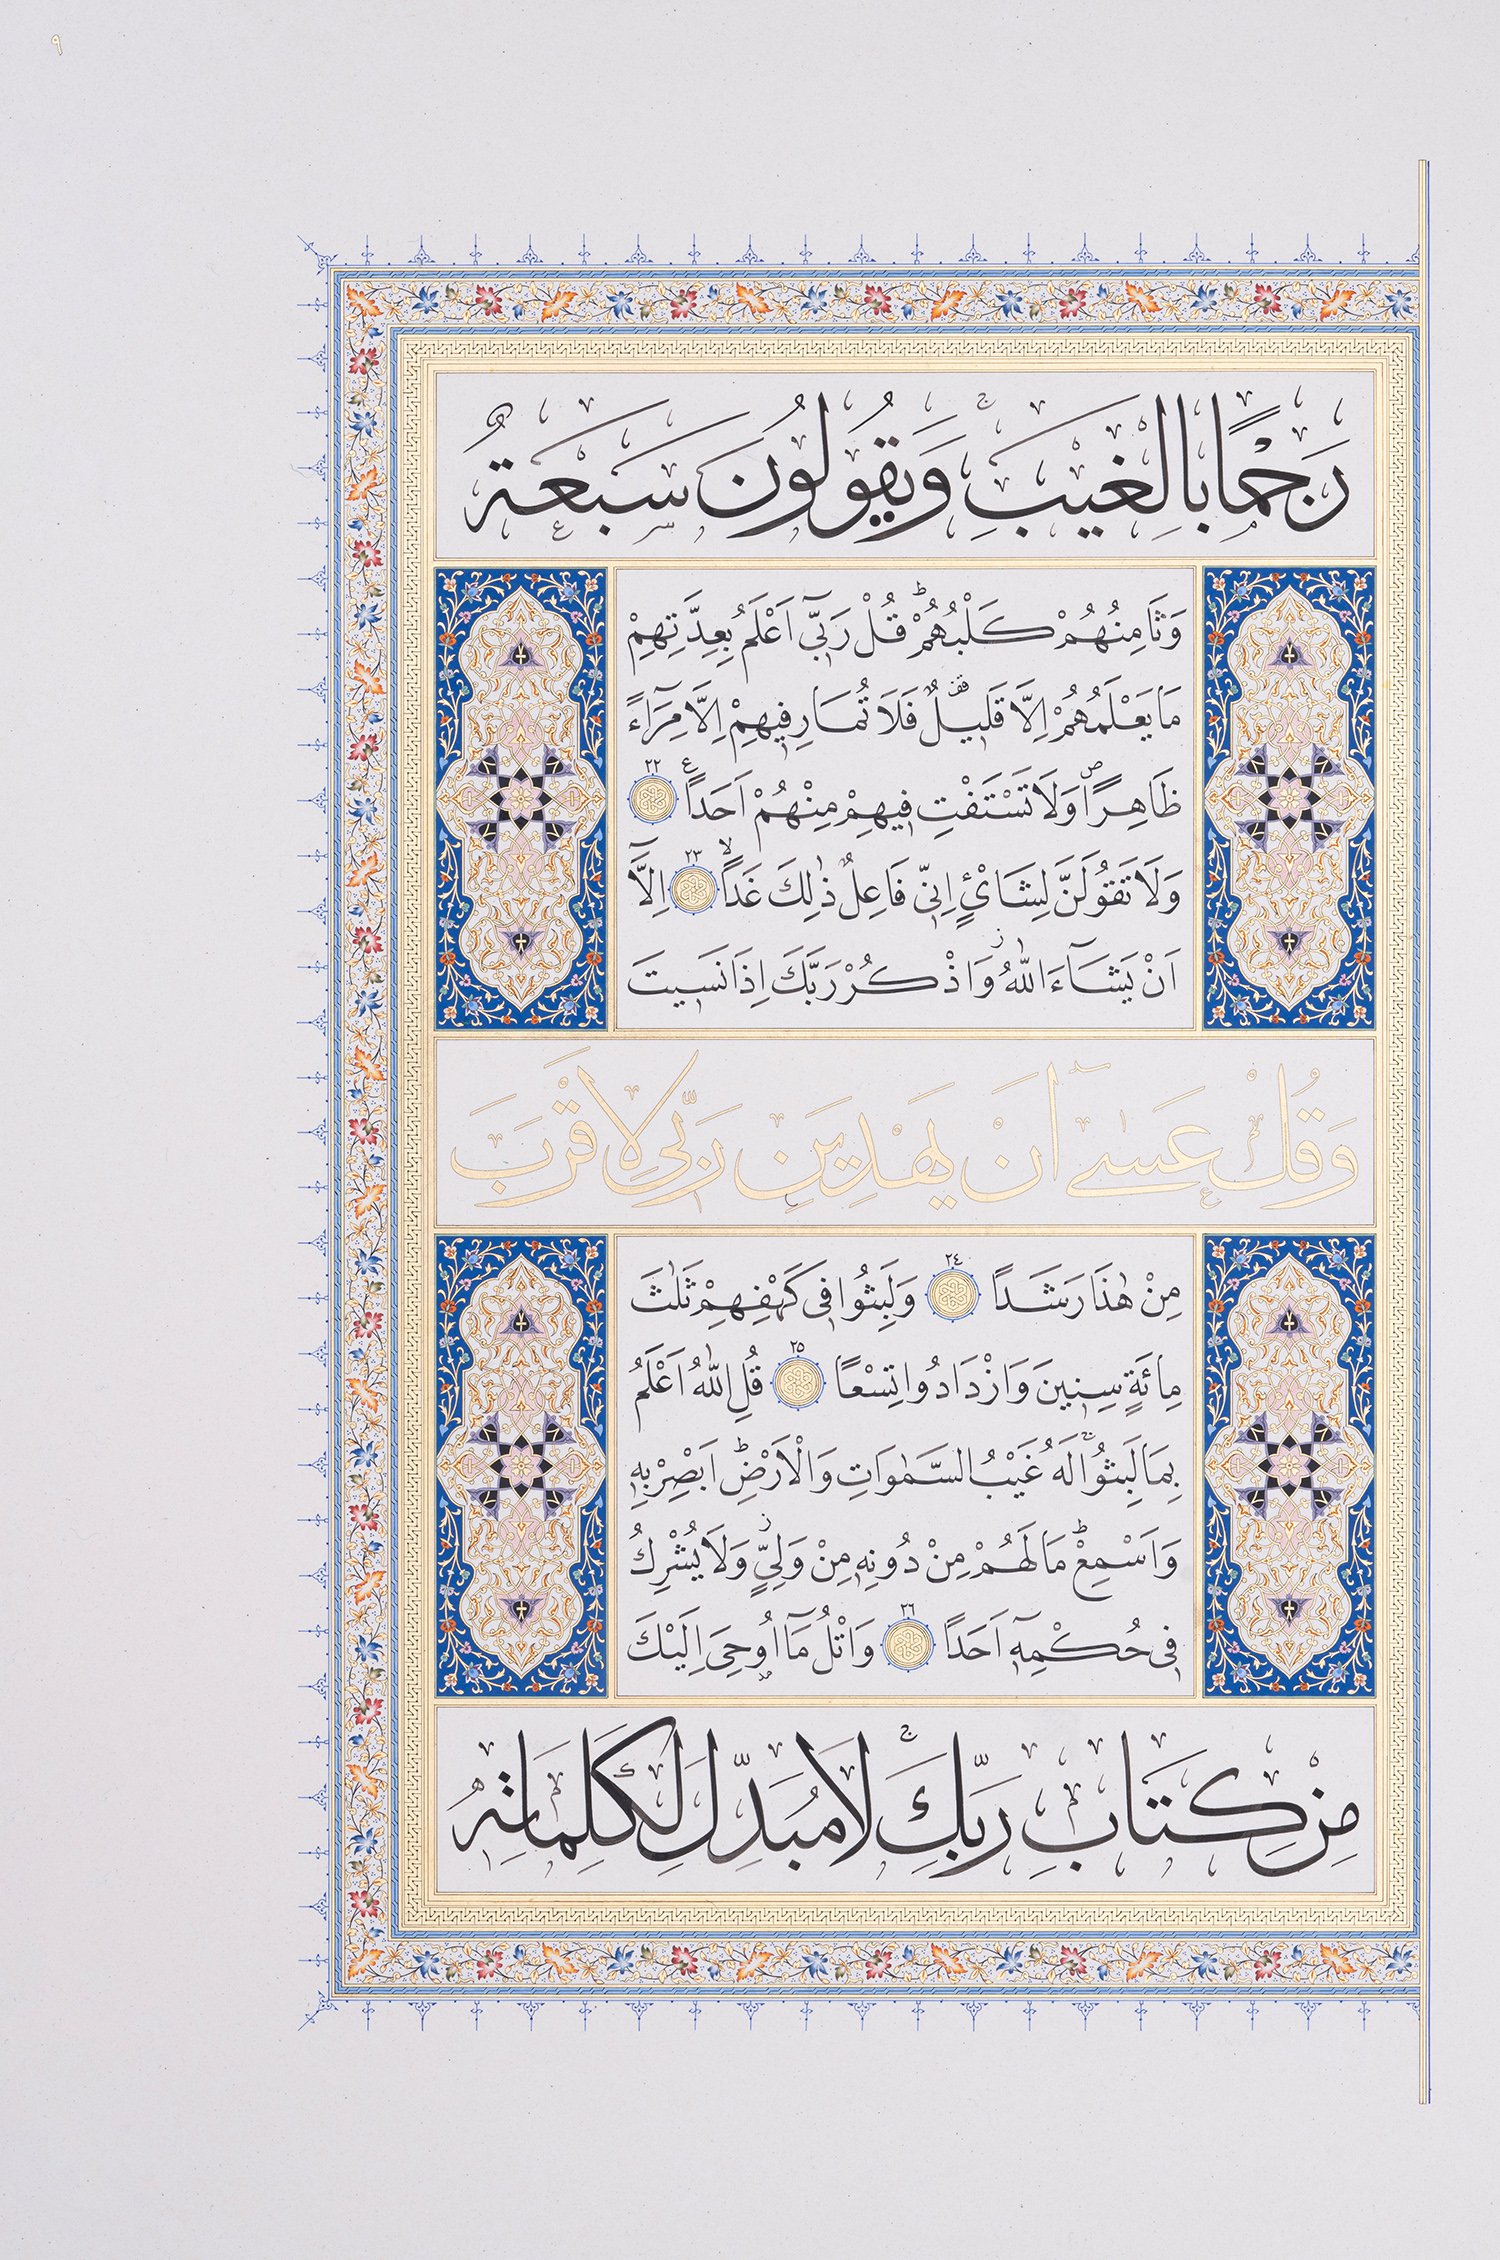 ٩
رَجْمًا بِالْغَيْبِ وَيَقُولُونَ سَبْعَةٌ
وَثَامِنُهُمْ كَلْبُهُمْ ۜ قُلْ رَبِّٓى اَعْلَمُ بِعِدَّتِهِمْ
مَا يَعْلَمُهُمْ اِلَّا قَلِيلٌ فَلَا تُمَارِ فِيهِمْ اِلَّا مِرَٓاءً
ظَاهِرًا وَلَا تَسْتَفْتِ فِيهِمْ مِنْهُمْ اَحَدًا ٢٢
وَلَا تَقُولَنَّ لِشَا۬ىْءٍ اِنِّى فَاعِلٌ ذٰلِكَ غَدًا ٢٣ اِلَّٓا
اَنْ يَشَٓاءَ اللّٰهُ وَاذْكُرْ رَبَّكَ اِذَا نَسِيتَ
وَقُلْ عَسٰٓى اَنْ يَهْدِيَنِ رَبِّى لِاَقْرَبَ
مِنْ هٰذَا رَشَدًا ٢٤ وَلَبِثُوا فِى كَهْفِهِمْ ثَلٰثَ
مِائَةٍ سِنِينَ وَازْدَادُوا تِسْعًا ٢٥ قُلِ اللّٰهُ اَعْلَمُ
بِمَا لَبِثُوا لَهُ غَيْبُ السَّمٰوَاتِ وَالْاَرْضِ اَبْصِرْ بِهِ
وَاَسْمِعْ مَا لَهُمْ مِنْ دُونِهِ مِنْ وَلِيٍّ وَلَا يُشْرِكُ
فِى حُكْمِهِٓ اَحَدًا ٢٦ وَاتْلُ مَٓا اُوحِىَ اِلَيْكَ
مِنْ كِتَابِ رَبِّكَ لَا مُبَدِّلَ لِكَلِمَاتِهِ